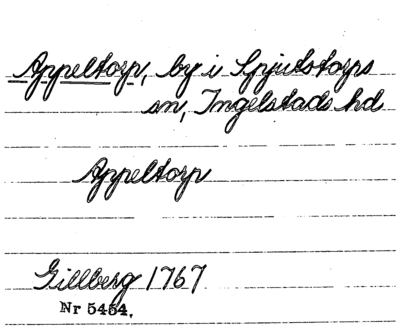 Appeltorp, by i Spjutstorps
sn, Ingelstads hd
Appeltorp
Gillberg 1767
Nr 5454.